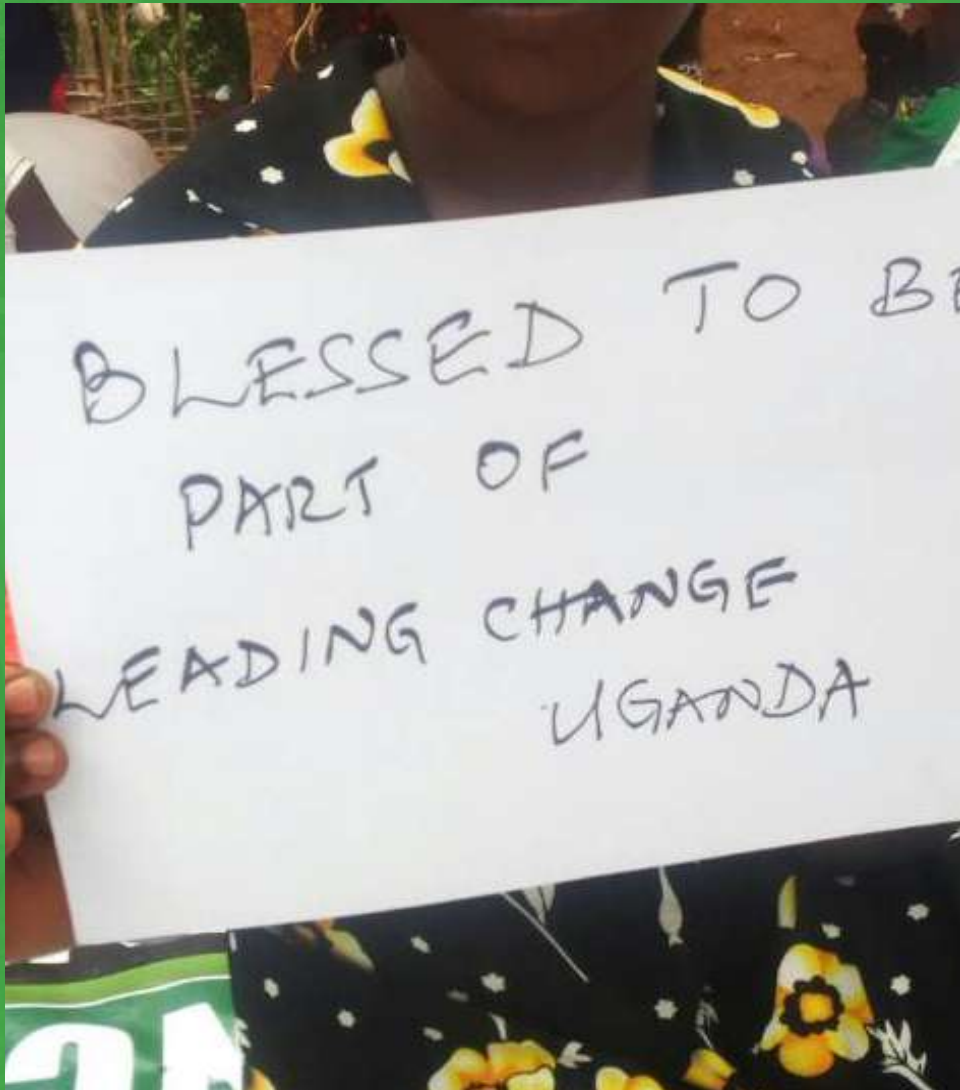 BLESSED TO BE
PART OF
LEADING CHANGE
UGANDA